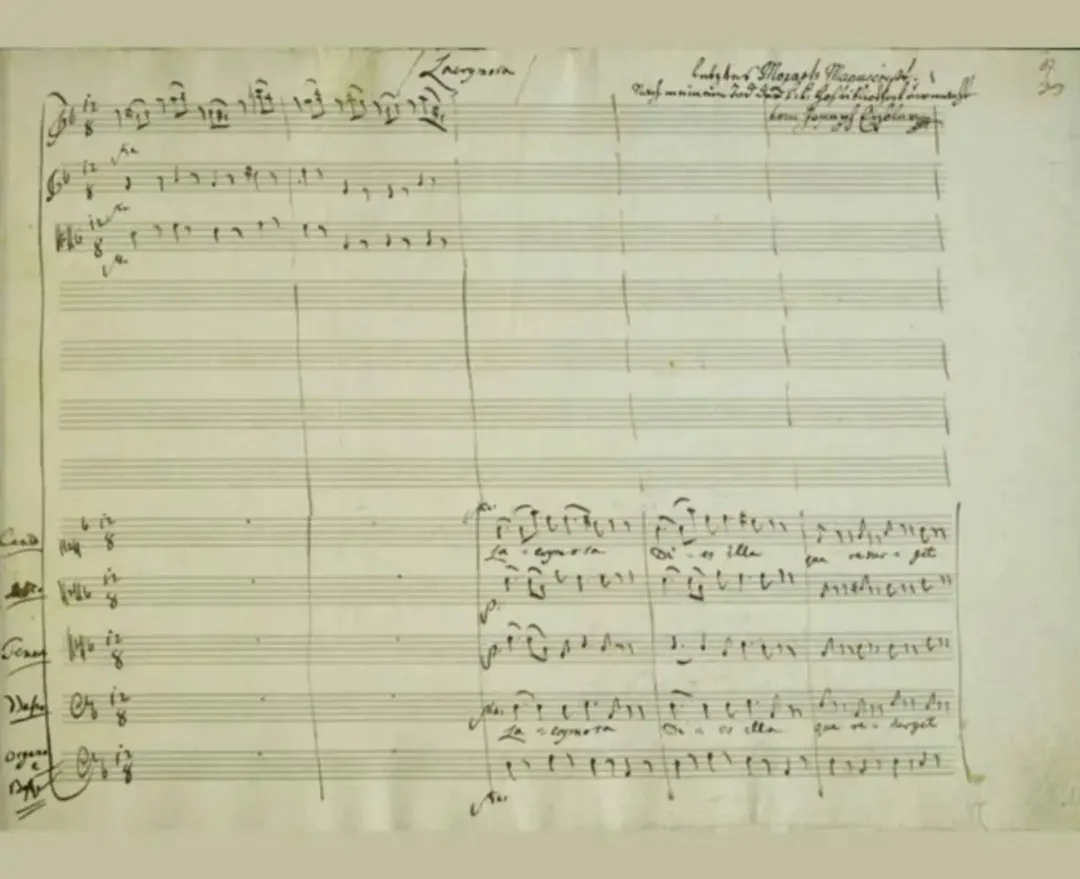 Lacrymosa
letztes Mozarts Manuscript.
Nach meinem Tod der k.k. Hofbibliothek vermacht
12
8
12
8
12
8
12
8
Canto
La - crymosa Di - es illa qua resur - get
12
8
Alto
12
8
Tenore
12
8
Basso
La - crymosa Di - es illa qua re - surget
12
8
Organo
e
Bassi